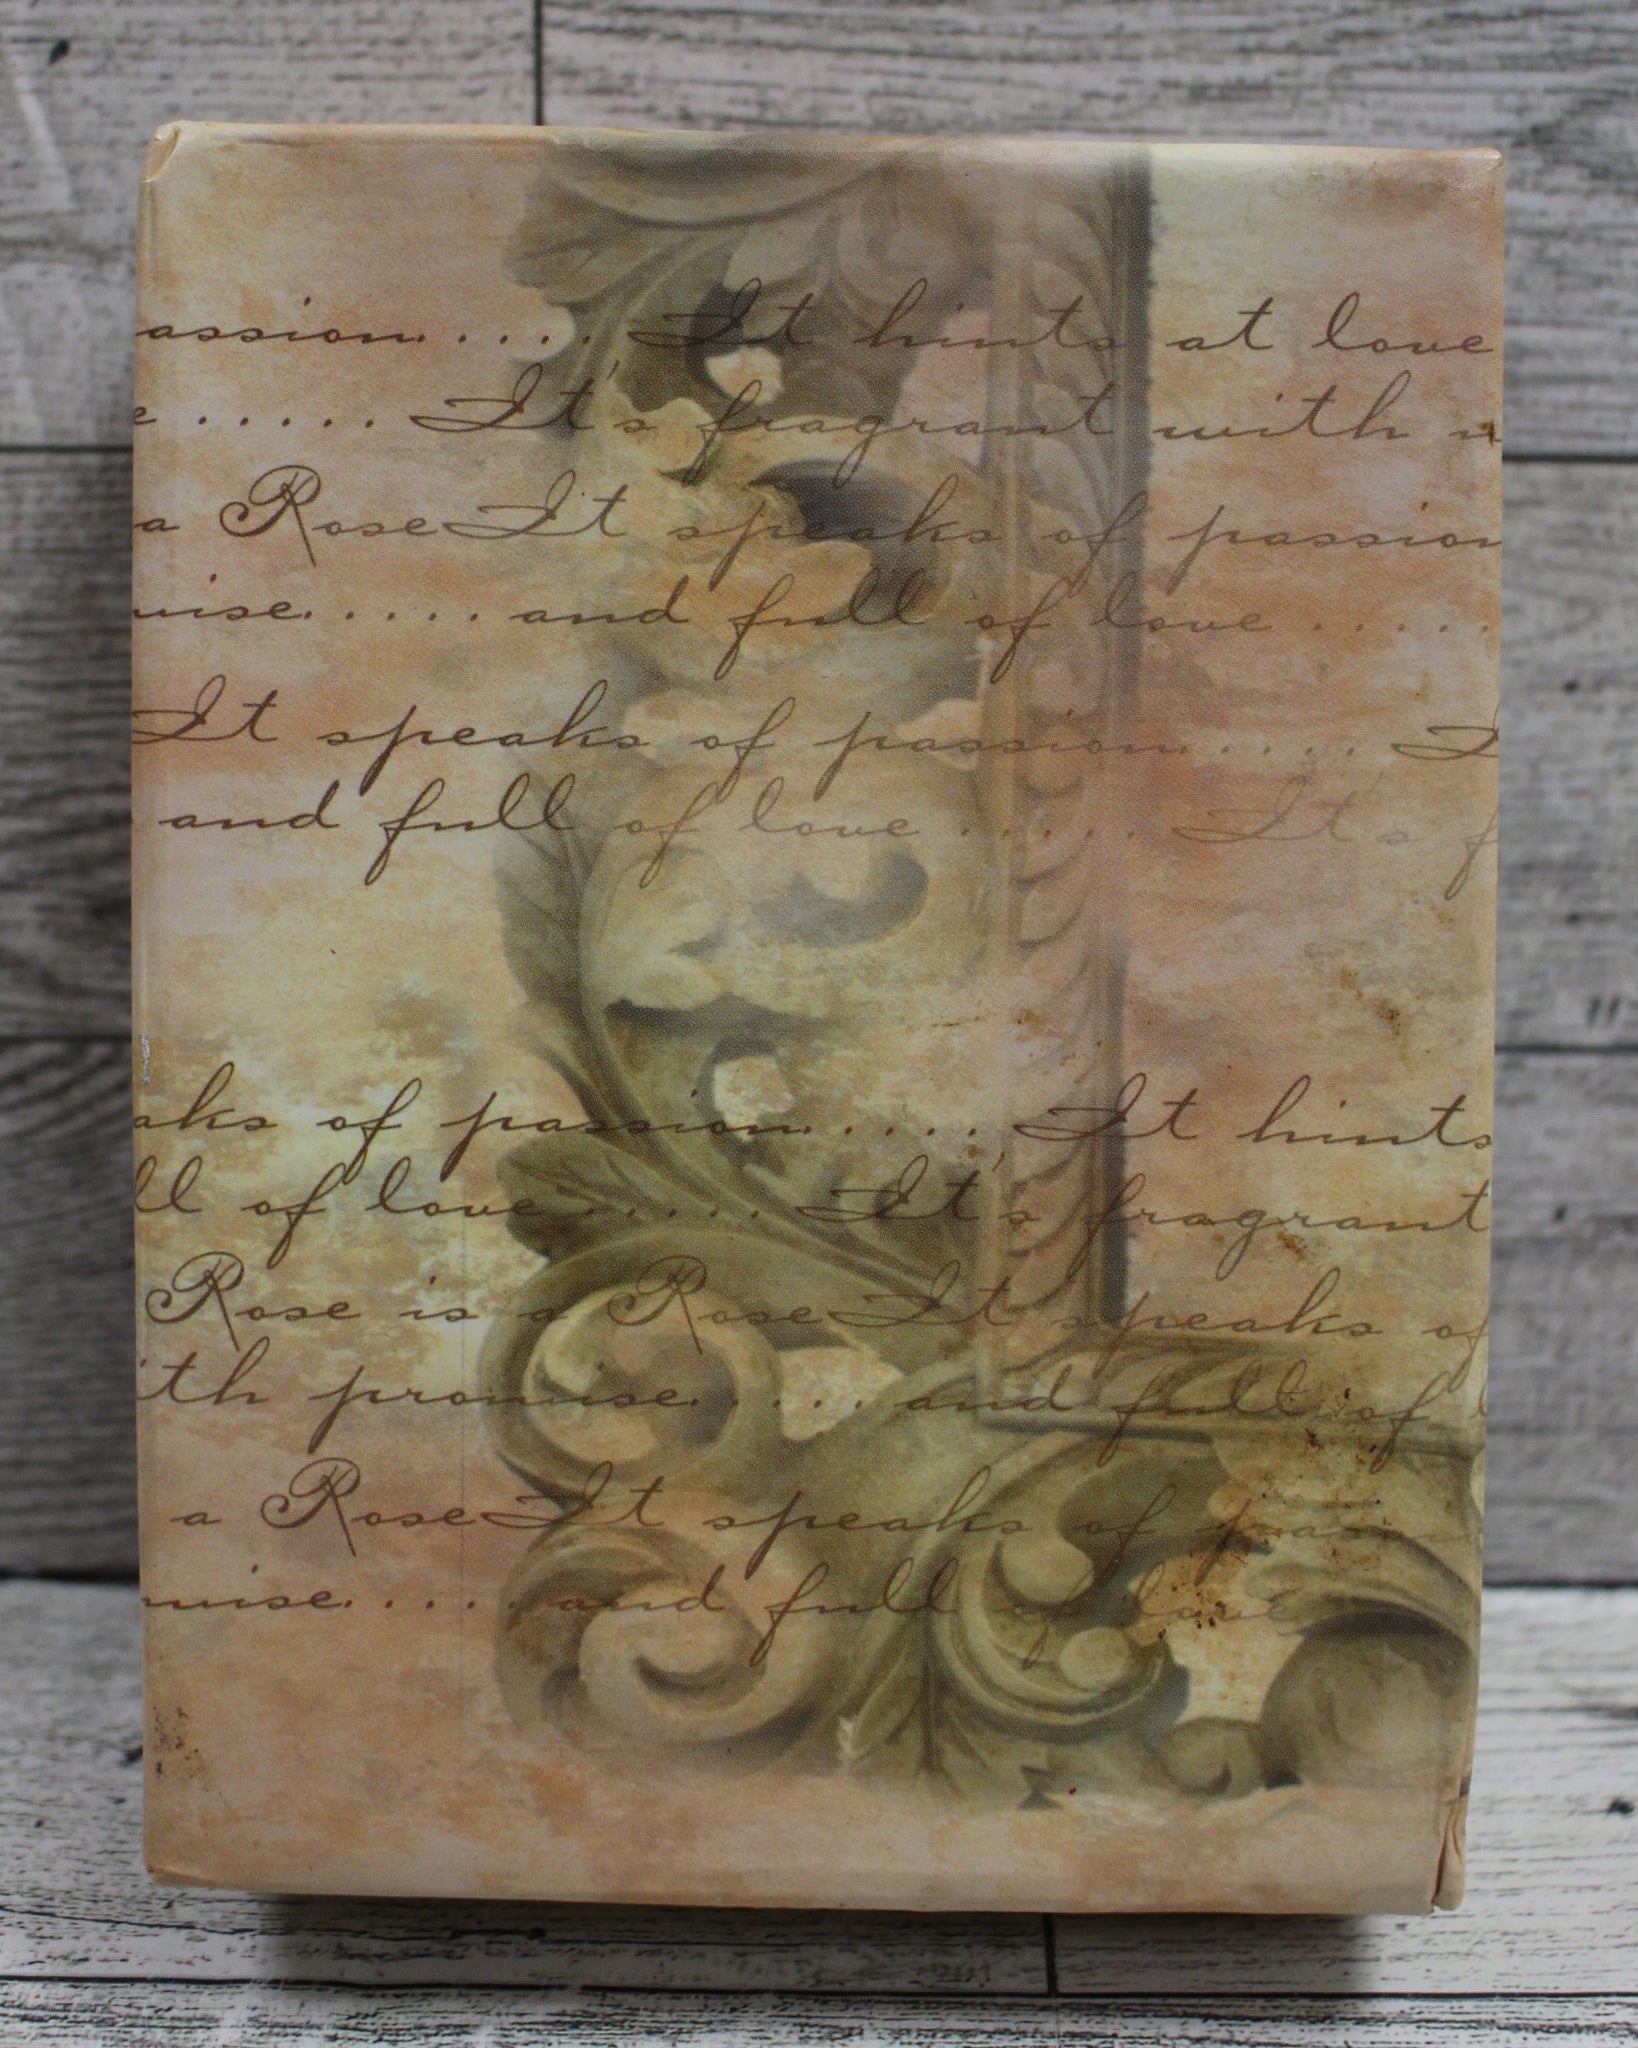 assion..... It hints at love
e ..... It's fragrant with
a Rose It speaks of passion
mise..... and full of love .....
It speaks of passion..... I
and full of love ..... It's f
aks of passion..... It hints
ll of love ..... It's fragrant
Rose is a Rose It speaks of
ith promise..... and full of l
a Rose It speaks of passion
mise..... and full of love